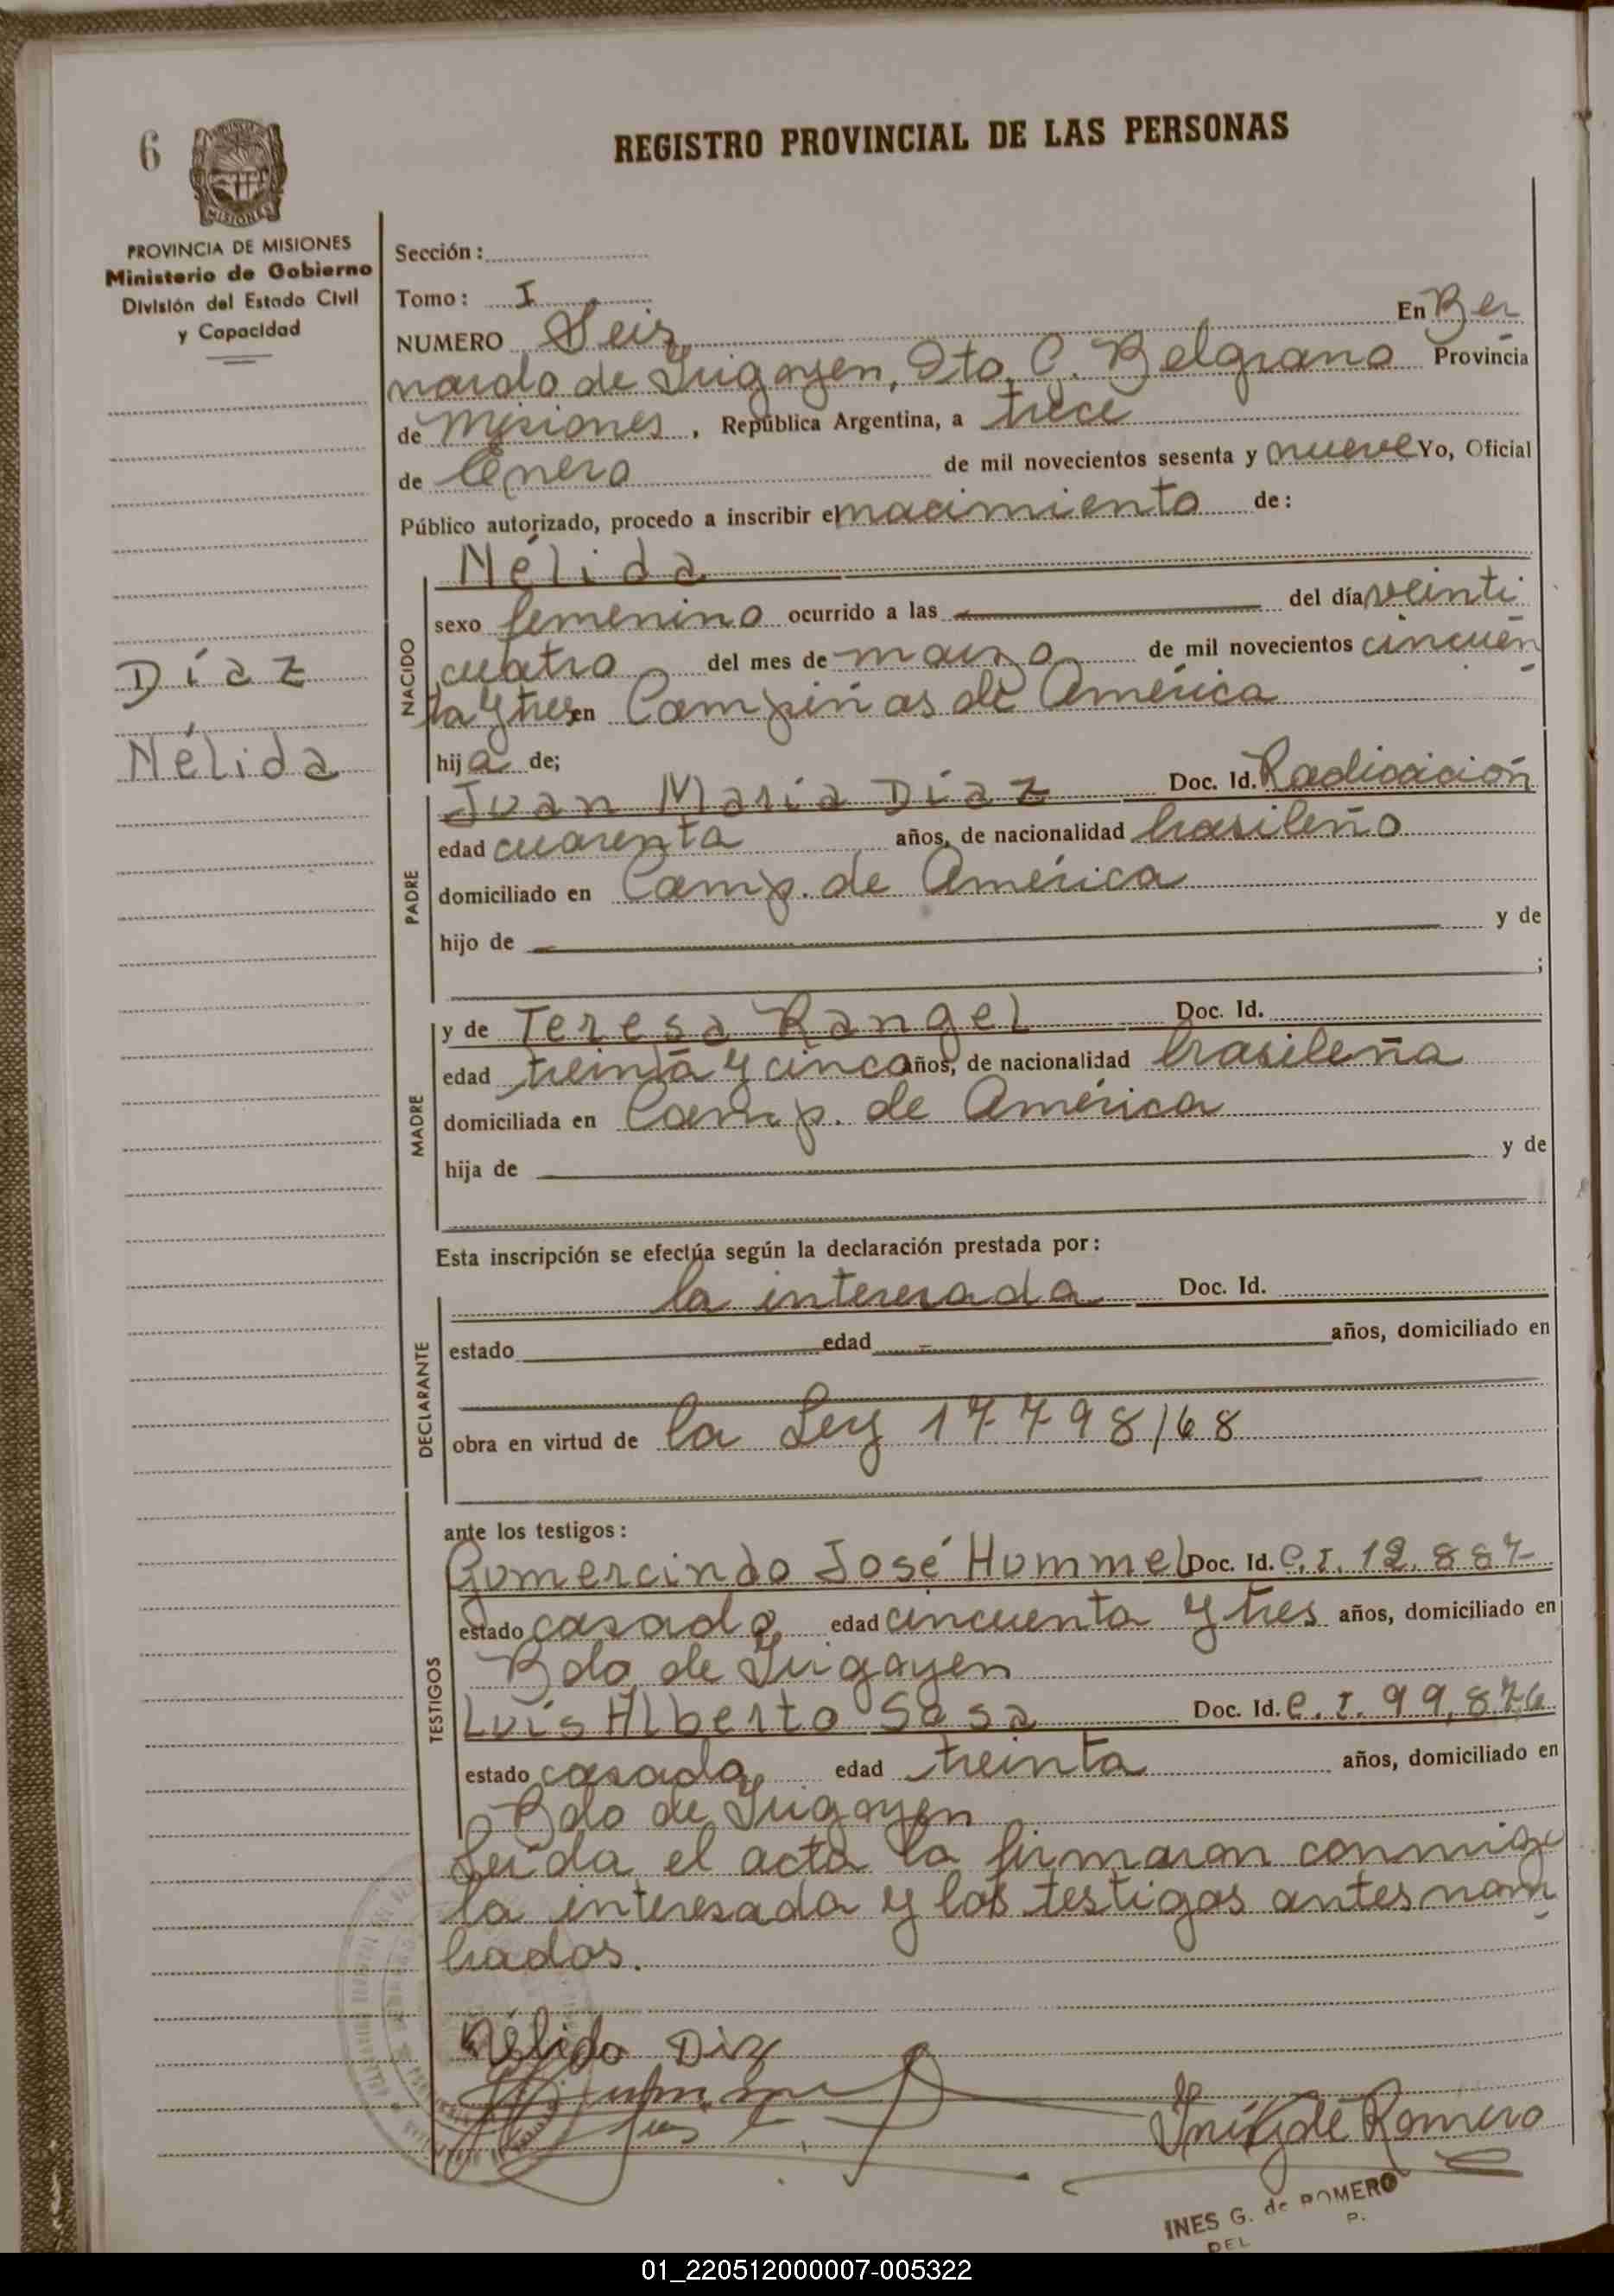 6
REGISTRO PROVINCIAL DE LAS PERSONAS
MISIONES
PROVINCIA DE MISIONES
Ministerio de Gobierno
División del Estado Civil
y Capacidad
Díaz
Nélida
Sección:
Tomo: I
NUMERO Seis En Ber
nardo de Irigoyen, Dto. G. Belgrano Provincia
de Misiones, República Argentina, a trece
de Enero de mil novecientos sesenta y nueve Yo, Oficial
Público autorizado, procedo a inscribir el nacimiento de:
NACIDO
Nélida
sexo femenino ocurrido a las del día veinti
cuatro del mes de marzo de mil novecientos cincuen
ta y tres en Campiñas de América
hija de;
PADRE
Juan María Díaz Doc. Id. Radicación
edad cuarenta años, de nacionalidad brasileño
domiciliado en Camp. de América
hijo de y de
;
MADRE
y de Teresa Rangel Doc. Id.
edad treinta y cinco años, de nacionalidad brasileña
domiciliada en Camp. de América
hija de y de
Esta inscripción se efectúa según la declaración prestada por:
DECLARANTE
la interesada Doc. Id.
estado edad años, domiciliado en
obra en virtud de la Ley 17798/68
ante los testigos:
TESTIGOS
Gumercindo José Hummel Doc. Id. C.I. 12.887
estado casado edad cincuenta y tres años, domiciliado en
Bdo de Irigoyen
Luis Alberto Sosa Doc. Id. C.I. 99.876
estado casado edad treinta años, domiciliado en
Bdo de Irigoyen
Leída el acta la firmaron conmigo
la interesada y los testigos antes nom
brados.
Nélida Diz
Inés G de Romero
INES G. de ROMERO
DEL P.
01_220512000007-005322